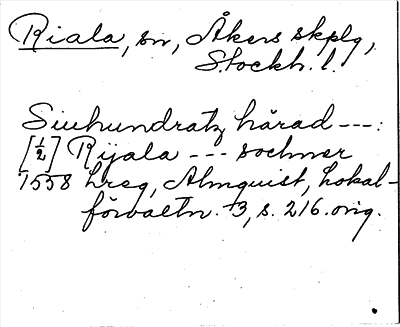 Riala, sn, Åkers skplg,
Stockh. l.
Siuhundratz härad ---:
[½] Rijala --- sochner
1558 hreg, Almquist, Lokal-
förvaltn. 3, s. 216. orig.